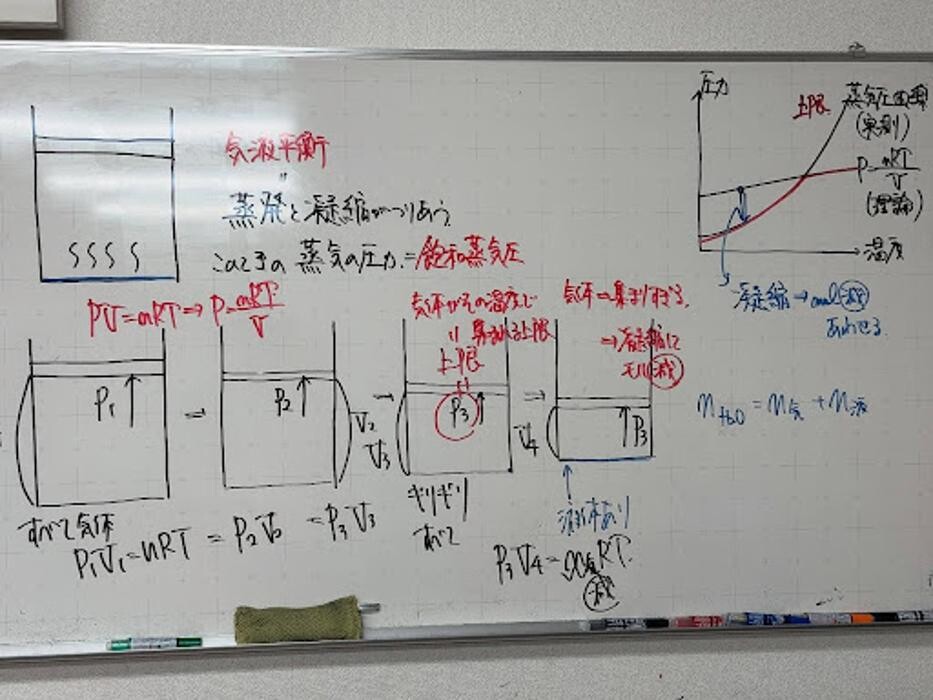 気液平衡
"
蒸発と凝縮がつりあう
このときの 蒸気の圧力=飽和蒸気圧
PV=nRT→P=nRT/V
圧力
上限
蒸気圧曲線
(実測)
P=nRT/V
(理論)
温度
凝縮→mol減
あわせる
気体がその温度で
集まれる上限
上限
気体→集まりすぎる
⇒凝縮して
モル減
P₁
→
P₂
V₂
V₃
→
P₃
→
V₄
P₃
nH₂O = n気 + n液
すべて気体
ギリギリ
すべて
液体あり
P₁V₁=nRT = P₂V₂ = P₃V₃
P₃V₄=n気RT
減